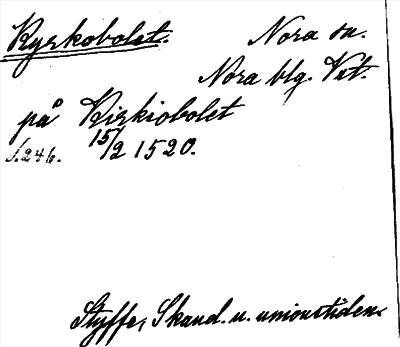 Kyrkobolet. Nora sn.
Nora blg. Vst.
på Kirkiobolet
s. 246. 15/2 1520.
Styffe, Skand. u. unionstiden